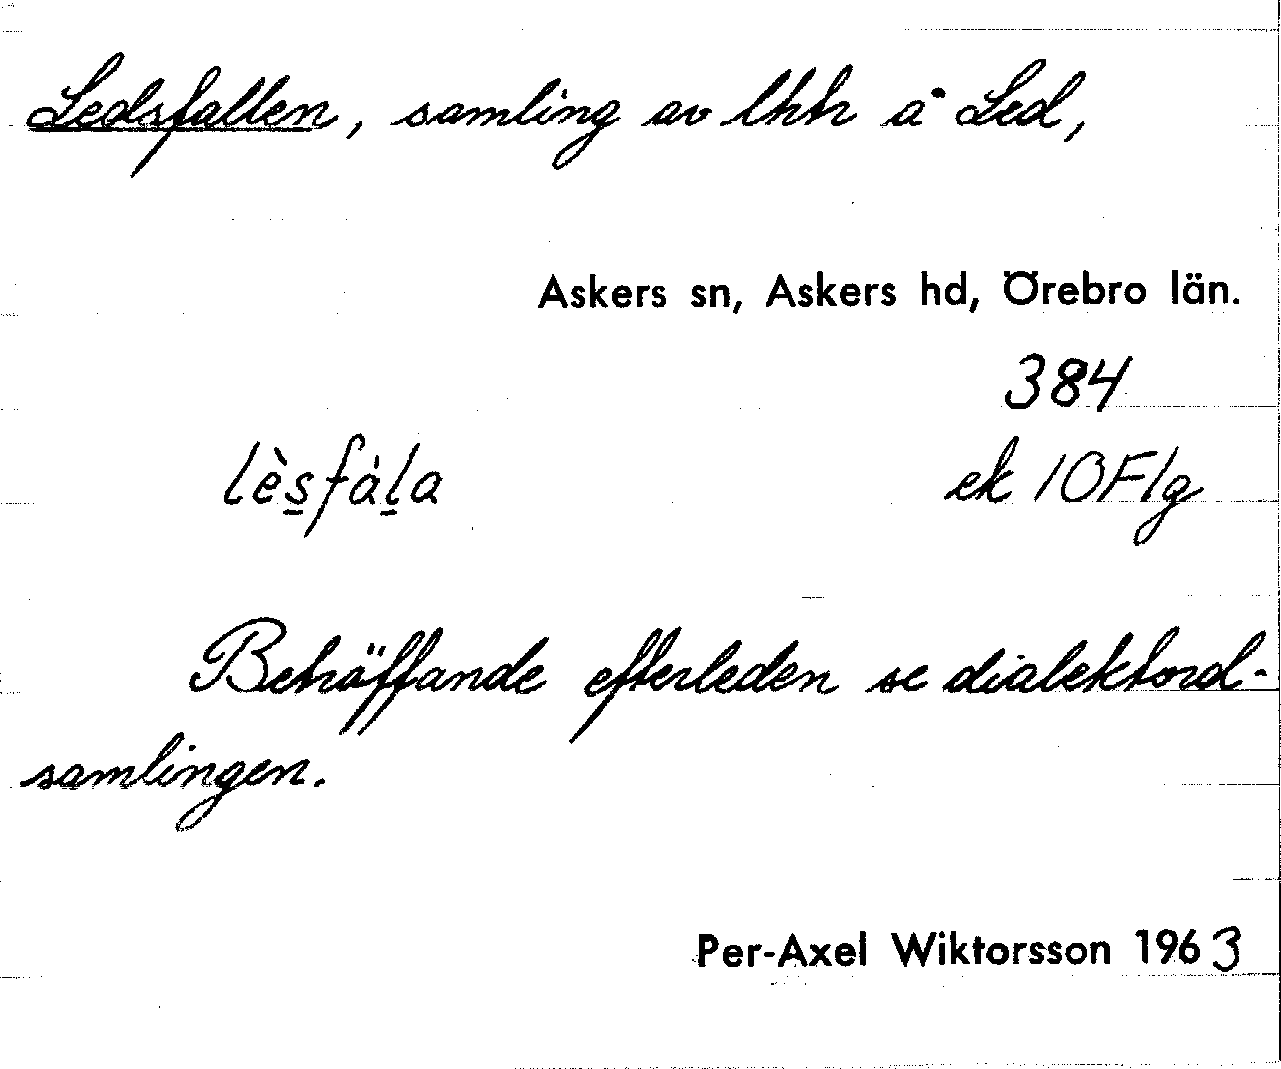 Ledsfallen, samling av lhh å Led,
Askers sn, Askers hd, Örebro län.
384
lès̲fàl̲a
ek 10F1g
Beträffande efterleden se dialektord-
samlingen.
Per-Axel Wiktorsson 1963